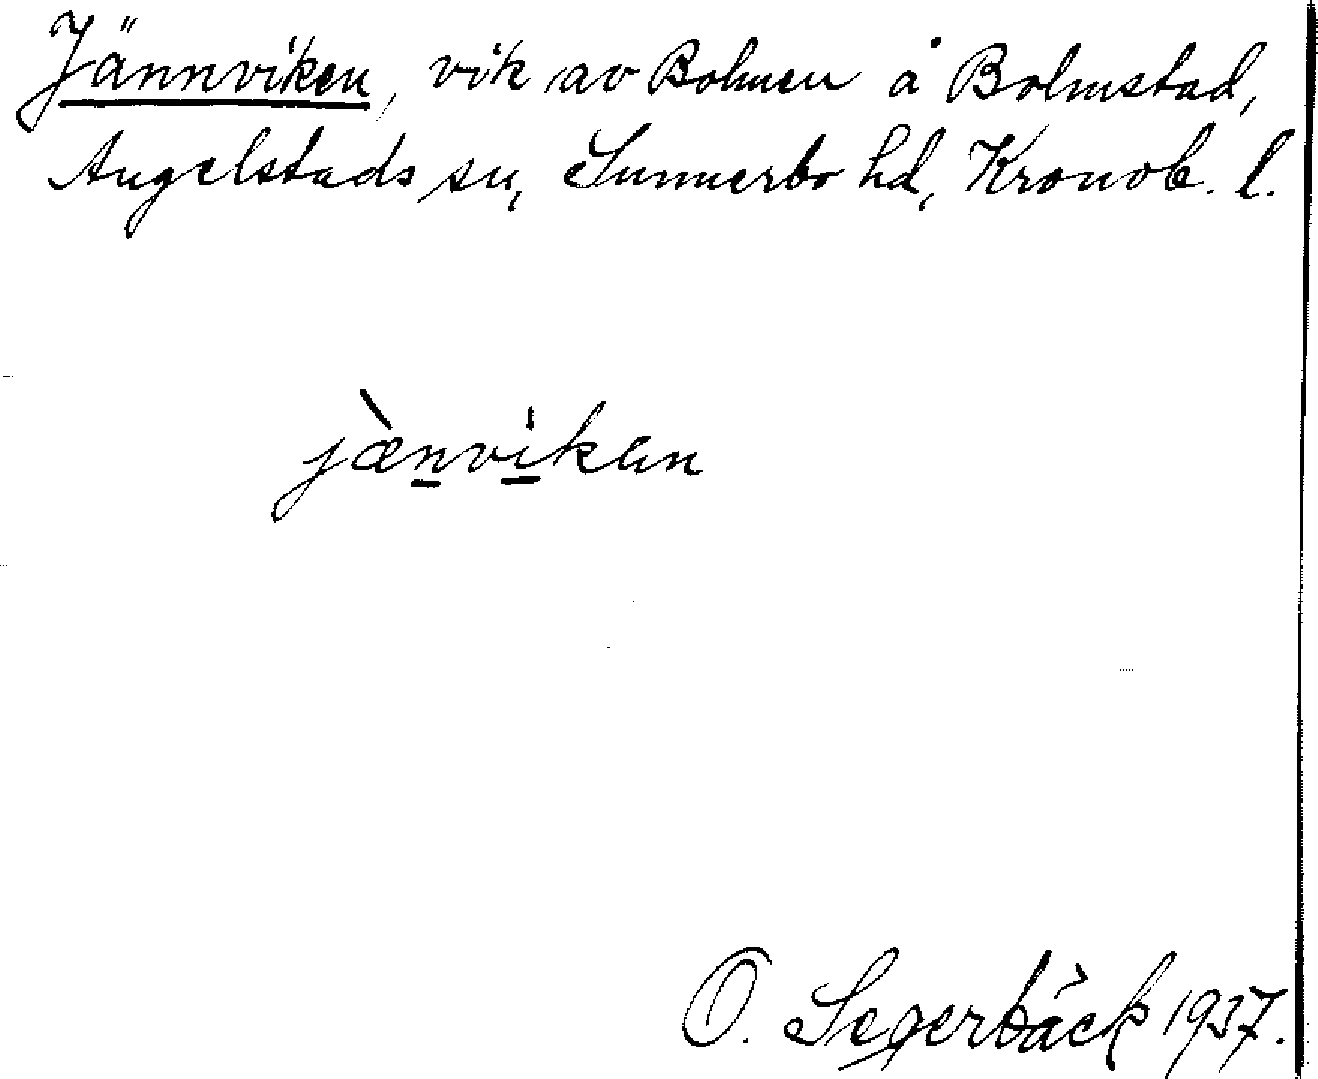 Jännviken, vik av Bolmen å Bolmstad,
Angelstads sn, Sunnerbo hd, Kronob. l.
jæ̀nvikən
O. Segerbäck 1937.